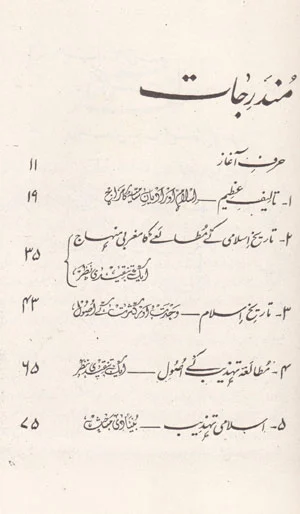 مندرجات
حرفِ آغاز ۱۱
۱- تالیفِ عظیم — ۱۹
۲- تاریخ اسلامی کے مطالعے کا مغربی منہاج
ایک تنقیدی نظر ۳۵
۳- تاریخِ اسلام — وحدت اور کثرت کے اصول ۴۳
۴- مطالعۂ تہذیب کے اصول — ایک تنقیدی نظر ۶۵
۵- اسلامی تہذیب — بنیادی مباحث ۷۵